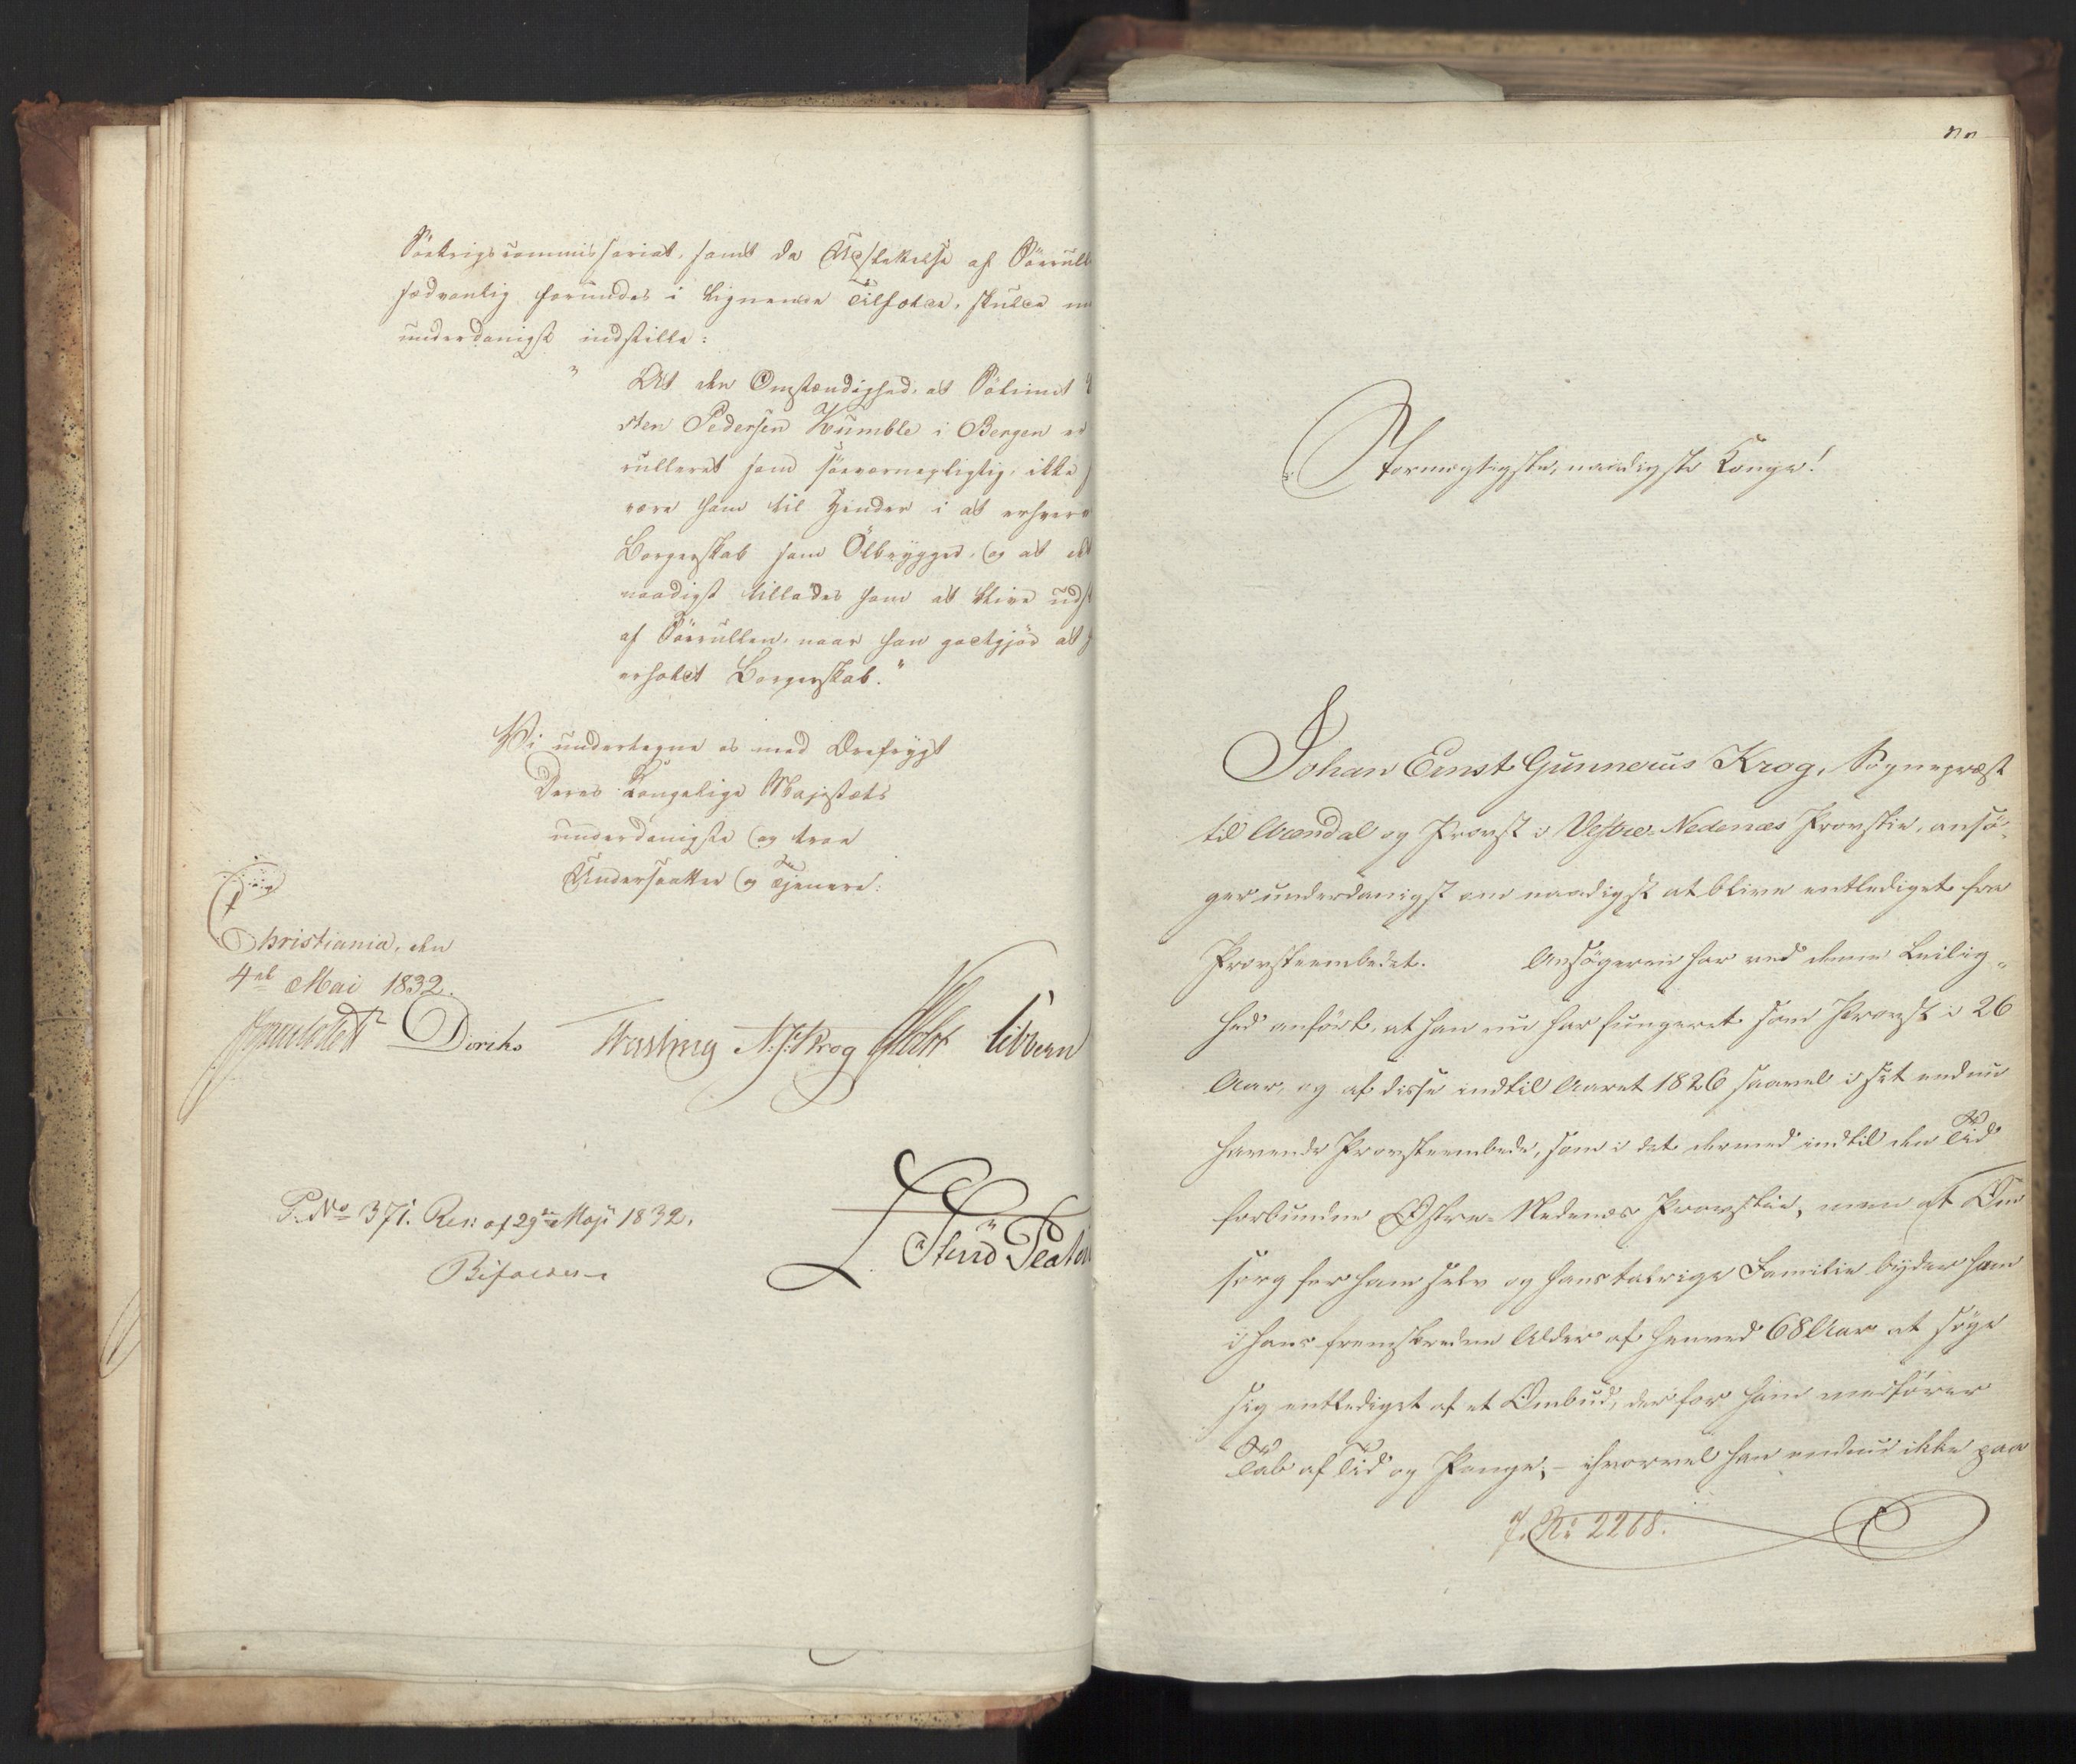 Søekrigscommissariat, samt da Udslettelse af Søerull
sædvanlig forundes i lignende Tilfælde, skulle
underdanigst indstille:
"At den Omstændighed, at Sølimit
sten Pedersen Kumble i Bergen er
rulleret som søeværnepligtig, ikke
være ham til Hinder i at erhverv
Borgerskab som Ölbrygger, og at det
naadigst tillades ham at blive uds
af Søerullen, naar han godtgjør at
erholdt Borgerskab."
Vi undertegne os med Ærefrygt
Deres Kongelige Majestæts
underdanigste og troe
Undersaatter og Tjenere:
Christiania, den
4de Mai 1832.
Diriks N. J. Krog Holst Sibbern
P. No 371. Res: af 29de Maji 1832.
Bifaldes
Stormægtigste, naadigste Konge!
Johan Ernst Gunnerus Krog, Sognepræst
til Arendal og Provst i Vestre-Nedenæs Provstie, ansø-
ger underdanigst om naadigst at blive entlediget fra
Provsteembedet. Ansøgeren har ved denne Leilig-
hed anført, at han nu har fungeret som Provst i 26
Aar, og af disse indtil Aaret 1826 saavel i sit endnu
havende Provsteembede, som i det dermed indtil den Tid
forbundne Østre-Nedenæs Provstie, men at Om
sorg for ham selv og hans talrige Familie byder ham
i hans fremskredne Alder af henved 68 Aar at søge
sig entlediget af et Ombud, der for ham medfører
Tab af Tid og Penge; - ihvorvel han endnu ikke paa
J. No 2268.